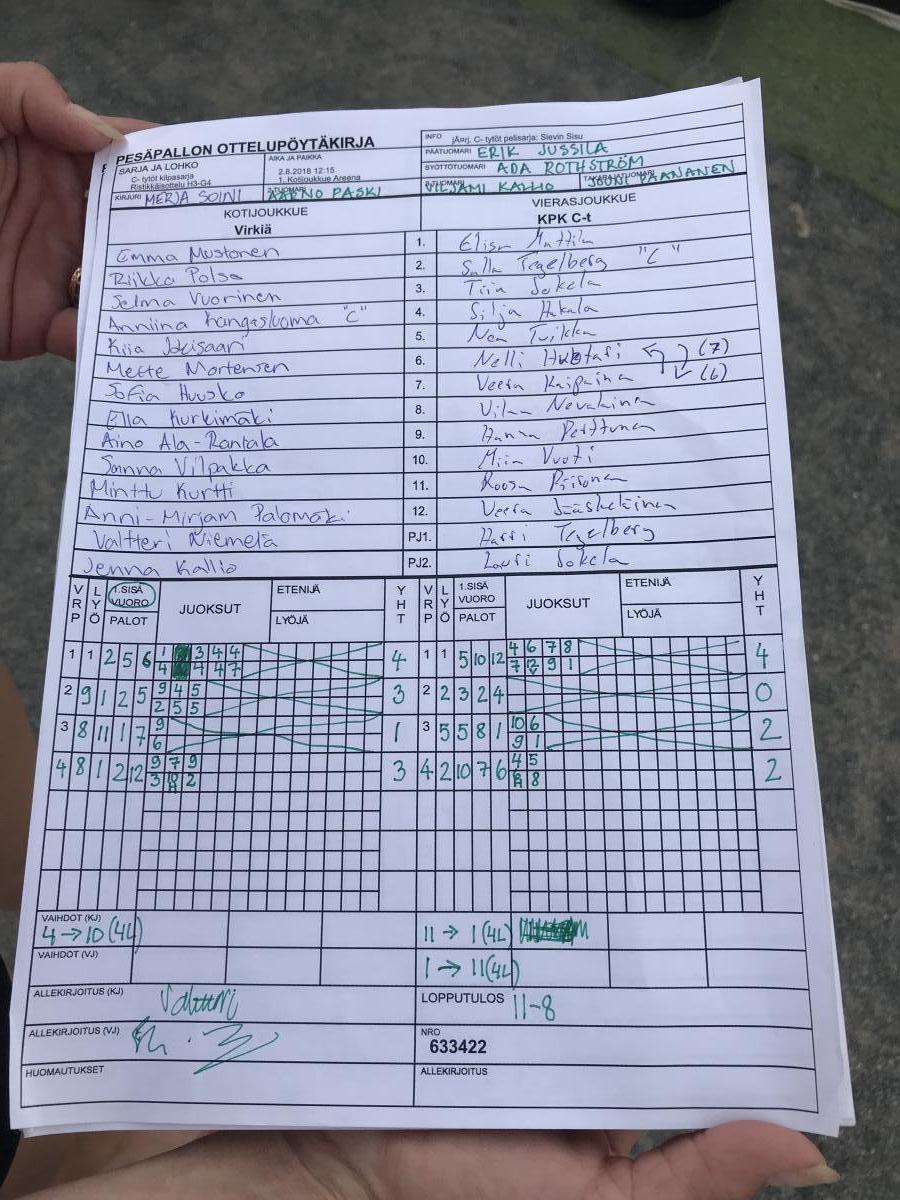 PESÄPALLON OTTELUPÖYTÄKIRJA
SARJA JA LOHKO
C- tytöt kilpasarja
Ristikkäisottelu H3-G4
AIKA JA PAIKKA
2.8.2018 12:15
1. Kotijoukkue Areena
INFO jÄrrj. C- tytöt pelisarja: Sievin Sisu
PÄÄTUOMARI ERIK JUSSILA
SYÖTTÖTUOMARI ADA ROTHSTRÖM
KIRJURI MERJA SOINI
2-TUOMARI AARNO PASKI
3-TUOMARI VILJAMI KALHO
TAKARAJATUOMARI JOUNI PAANANEN
KOTIJOUKKUE
Virkiä
VIERASJOUKKUE
KPK C-t
Emma Mustonen 1. Elisa Mattila
Riikka Polso 2. Salla Tegelberg "C"
Selma Vuorinen 3. Tiia Jokela
Anniina Kangasluoma "C" 4. Silja Hakala
Kiia Jokisaari 5. Noa Tuikka
Mette Mortensen 6. Nelli Huhtasi (7)
Sofia Huusko 7. Veera Kaipaina (6)
Ella Kurkimäki 8. Vilma Nevalainen
Aino Ala-Rantala 9. Hanna Perttunen
Sanna Vilpakka 10. Miia Vuoti
Minttu Kurtti 11. Roosa Piisonen
Anni-Mirjam Palomäki 12. Veera Jääskeläinen
Valtteri Niemelä PJ1. Harri Tegelberg
Jenna Kallio PJ2. Lauri Jokela
VRP LYÖ 1.SISÄ VUORO PALOT JUOKSUT ETENIJÄ LYÖJÄ YHT
VRP LYÖ 1.SISÄ VUORO PALOT JUOKSUT ETENIJÄ LYÖJÄ YHT
1 1 2 5 6 1 3 4 4 4
4 4 4 7
1 1 5 10 12 4 6 7 8 4
7 12 9 1
2 9 1 2 5 9 4 5 3
2 5 5
2 2 3 2 4 0
3 8 11 1 7 9 1
6
3 5 5 8 1 10 6 2
9 1
4 8 1 2 12 9 7 9 3
3 10 2
4 2 10 7 6 4 5 2
8
VAIHDOT (KJ)
4 → 10 (4L)
11 → 1 (4L)
VAIHDOT (VJ)
1 → 11 (4L)
ALLEKIRJOITUS (KJ)
LOPPUTULOS 11-8
ALLEKIRJOITUS (VJ)
NRO
633422
HUOMAUTUKSET
ALLEKIRJOITUS